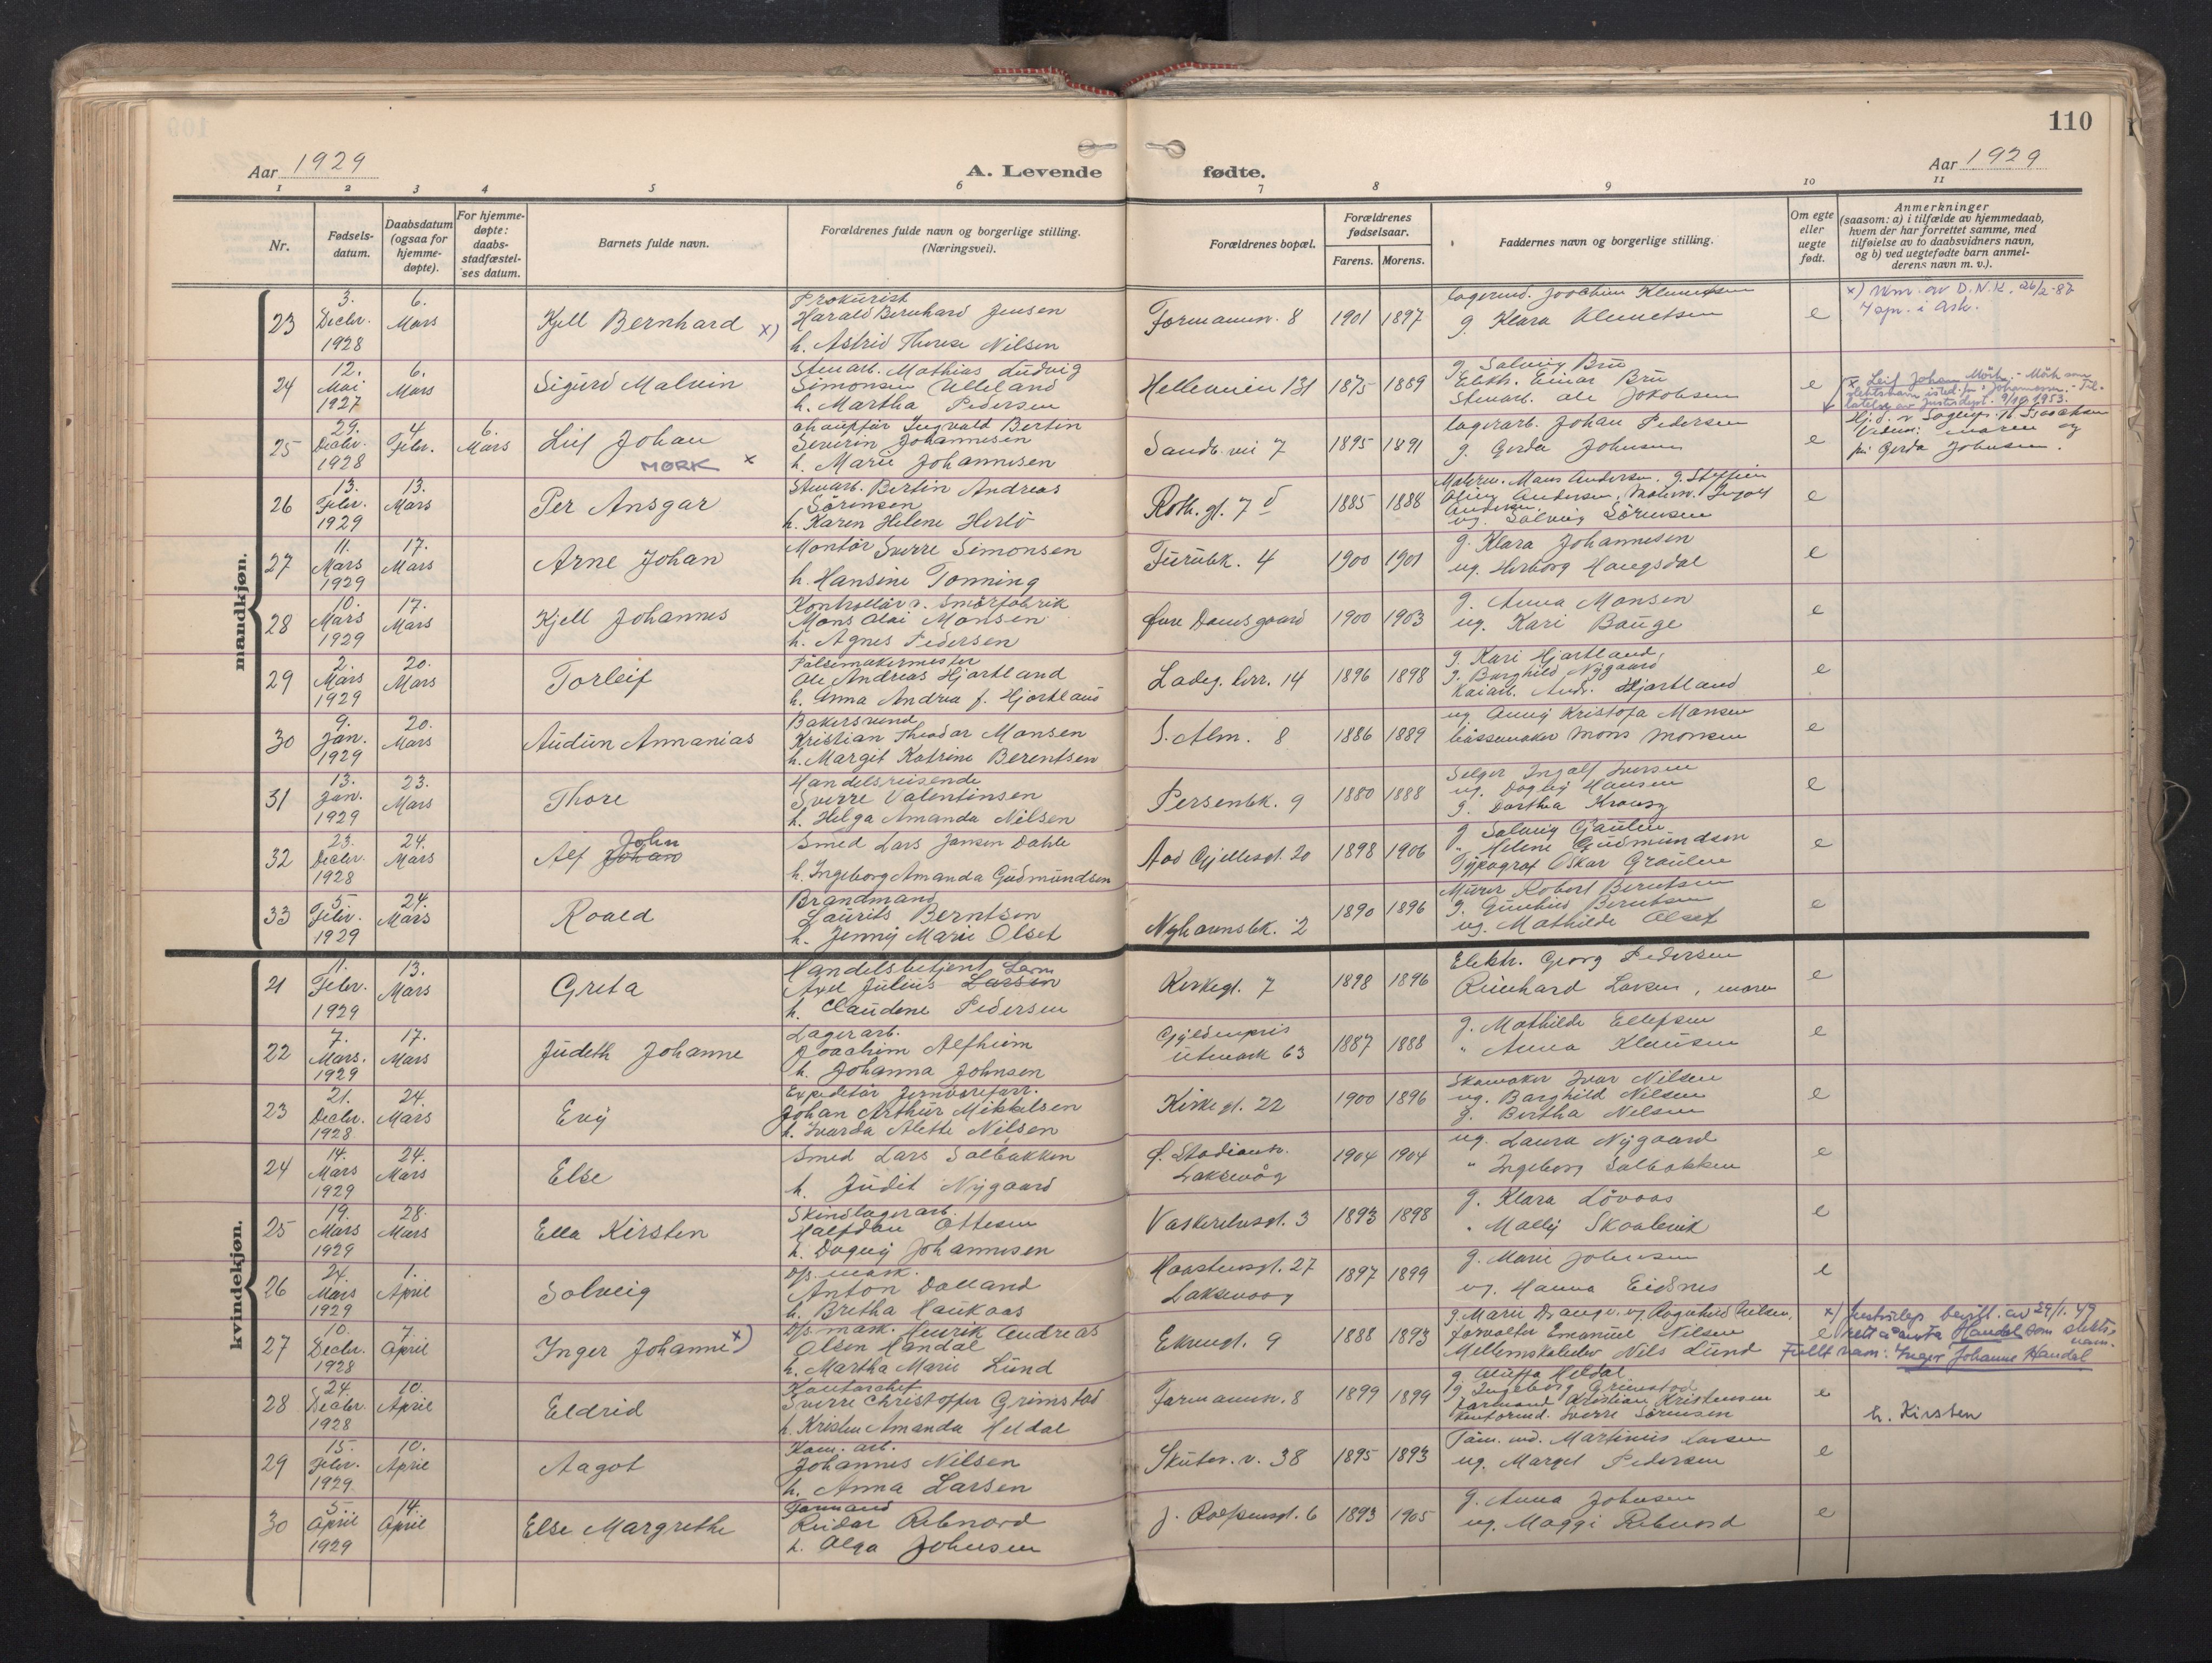 110
Aar 1929
A. Levende fødte.
Aar 1929
1 2 3 4 5 6 7 8 9 10 11
Nr.
Fødsels-
datum.
Daabsdatum
(ogsaa for
hjemme-
døpte).
For hjemme-
døpte:
daabs-
stadfæstel-
ses datum.
Barnets fulde navn.
Forældrenes fulde navn og borgerlige stilling.
(Næringsvei).
Forældrenes bopæl.
Forældrenes
fødselsaar.
Farens. Morens.
Faddernes navn og borgerlige stilling.
Om egte
eller
uegte
født.
Anmerkninger
(saasom: a) i tilfælde av hjemmedaab,
hvem der har forrettet samme, med
tilføielse av to daabsvidners navn,
og b) ved uegtefødte barn anmel-
derens navn m. v.).
mandkjøn.
23
3.
Decbr.
1928
6.
Mars
Kjell Bernhard x)
Prokurist
Harald Bernhard Jensen
h. Astrid Therese Nilsen
Formannsv. 8
1901 1897
lagermd. Joachim Klemetsen
g. Klara Klemetsen
e
x) Utm. av D.N.K. 26/2-87
24
12.
Mai
1927
6.
Mars
Sigurd Malvin
Stenarb. Mathias Ludvig
Simonsen Ulleland
h. Martha Pedersen
Helleveien 131
1875 1889
g. Solveig Bru
Elektr. Einar Bru
Stenarb. Ole Jakobsen
e
x Leif Johan Mörk. - Mörk som
slektsnavn isted. for "Johannesen". - Til-
latelse av Justisdept. 9/10 1953.
25
29.
Decbr.
1928
4.
Febr.
6.
Mars
Leif Johan
MØRK x
chauffør Ingvald Bertin
Severin Johannesen
h. Marie Johannesen
Sandv. vei 7
1895 1891
lagerarb. Johan Pedersen
g. Gerda Johnsen
e
Hj. d. v. Sogepr. Isaachsen
Vidner: moren og
fru Gerda Johnsen.
26
13.
Febr.
1929
13.
Mars
Per Ansgar
Stenarb. Bertin Andreas
Sörensen
h. Karen Helene Herlö
Roth. gt. 7 d
1885 1888
Malerm. Mans Andersen. g. Steffien
Andersen, Malersv. Ingolf
Andersen,
ug. Solveig Sörensen
e
27
11.
Mars
1929
17.
Mars
Arne Johan
Montör Sverre Simonsen
h. Hansine Tonning
Furubk. 4
1900 1901
g. Klara Johannesen
ug. Herborg Haugsdal
e
28
10.
Mars
1929
17.
Mars
Kjell Johannes
Kontrollör v. Smörfabrik
Mons Olai Monsen
h. Agnes Pedersen
Øvre Damsgaard
1900 1903
g. Anna Monsen
ug. Kari Bauge
e
29
2.
Mars
1929
20.
Mars
Torleif
Pölsemakermester
Ole Andreas Hjartland
h. Anna Andrea f. Hjortland
Ladeg. terr. 14
1896 1898
g. Kari Hjartland,
g. Borghild Nygaard
Kaiarb. Andr. Hjartland
e
30
9.
Jan.
1929
20.
Mars
Audun Annanias
Bakersvend
Kristian Theodor Monsen
h. Margit Katrine Berentsen
S. Alm. 8
1886 1889
ug. Anny Kristofa Monsen
bössemaker Mons Monsen
e
31
13.
Jan.
1929
23.
Mars
Thore
Handelsreisende
Sverre Valentinsen
h. Helga Amanda Nilsen
Persenbk. 9
1880 1888
Selger Ingolf Iversen
ug. Dagny Hansen
g. Dorthea
e
32
23.
Decbr.
1928
24.
Mars
John
Alf Johan
Smed Lars Jansen Dahle
h. Ingeborg Amanda Gudmundsen
Aad Gjellesgt. 20
1898 1906
g. Solveig
" Helene Gudmundson
Typograf Oskar
e
33
5.
Febr.
1929
24.
Mars
Roald
Brandmand
Laurits Berntsen
h. Jenny Marie Olset
Nyhavnsbk. 2
1890 1896
Murer Robert Berntsen
g. Gunhild Berntsen
ug. Mathilde Olset
e
kvindekjøn.
21
11.
Febr.
1929
13.
Mars
Greta
Handelsbetjent Lerm
Axel Julius Larsen
h. Claudene Pedersen
Kirkegt. 7
1898 1896
Elektr. Georg Pedersen
Reinhard Larsen, moren
e
22
7.
Mars.
1929
17.
Mars
Judeth Johanne
Lagerarb.
Joachim Alfheim
h. Johanna Johnsen
Gyldenpris
utmark 63
1887 1888
g. Mathilde Ellefsen
" Anna Klausen
e
23
21.
Decbr.
1928
24.
Mars
Evy
Expeditör Jernvareforr.
Johan Arthur Mikkelsen
h. Ivarda Alette Nilsen
Kirkegt. 22
1900 1896
Skomaker Ivar Nilsen
ug. Borghild Nilsen
g. Bertha Nilsen
e
24
14.
Mars
1929
24.
Mars
Else
Smed Lars Solbakken
h. Judit Nygaard
Ø. Stadionv.
Laksevåg
1904 1904
ug. Laura Nygaard
" Ingeborg Solbakken
e
25
19.
Mars
1929
28.
Mars
Ella Kirsten
Skindlagerarb.
Halfdan Ottesen
h. Dagny Johannesen
Vaskerelvsgt. 3
1893 1898
g. Klara Lövaas
" Molly Skaalevik
e
26
24.
Mars
1929
1.
April
Solveig
Off. mask.
Anton Dalland
h. Bretha Haukaas
Haastensgt. 27
Laksevaag
1897 1899
g. Marie Johnsen
ug. Hanna Eidsnes
e
27
10.
Decbr.
1928
7.
April
Inger Johanne x)
Off. mask. Henrik Andreas
Olsen Handal
h. Martha Marie Lund
Ekrengt. 9
1888 1893
g. Marie Drange. ug. Ragnhild Nilsen,
forvalter Emanuel Nilsen
Mellemskoleelev Nils Lund
e
x) Justisdep. bevill. av 29/1. 49
rett å anta Handal som slekts-
navn.
Fullt navn: Inger Johanne Handal
28
24.
Decbr.
1928
10.
April
Eldrid
Kontorchef
Sverre Christoffer Grimstad
h. Kristen Amanda Heldal
Formannsv. 8
1899 1899
g. Heldal
g. Ingeborg Grimstad
Formand Kristian Kristensen
Kontormd. Sverre Sörensen
e
h. Kirsten
29
15.
Febr.
1929.
10.
April
Aagot
Kom. arb.
Johannes Nilsen
h. Anna Larsen
Skutev. v. 38
1895 1893
Töm. md. Martinus Larsen
ug. Margit Pedersen
e
30
5.
April
1929
14.
April
Else Margrethe
Formand
Reidar Rebnord
h. Olga Johnsen
J. Rolfsensgt. 6
1893 1905
g. Anna Johnsen
ug. Maggi Rebnord
e